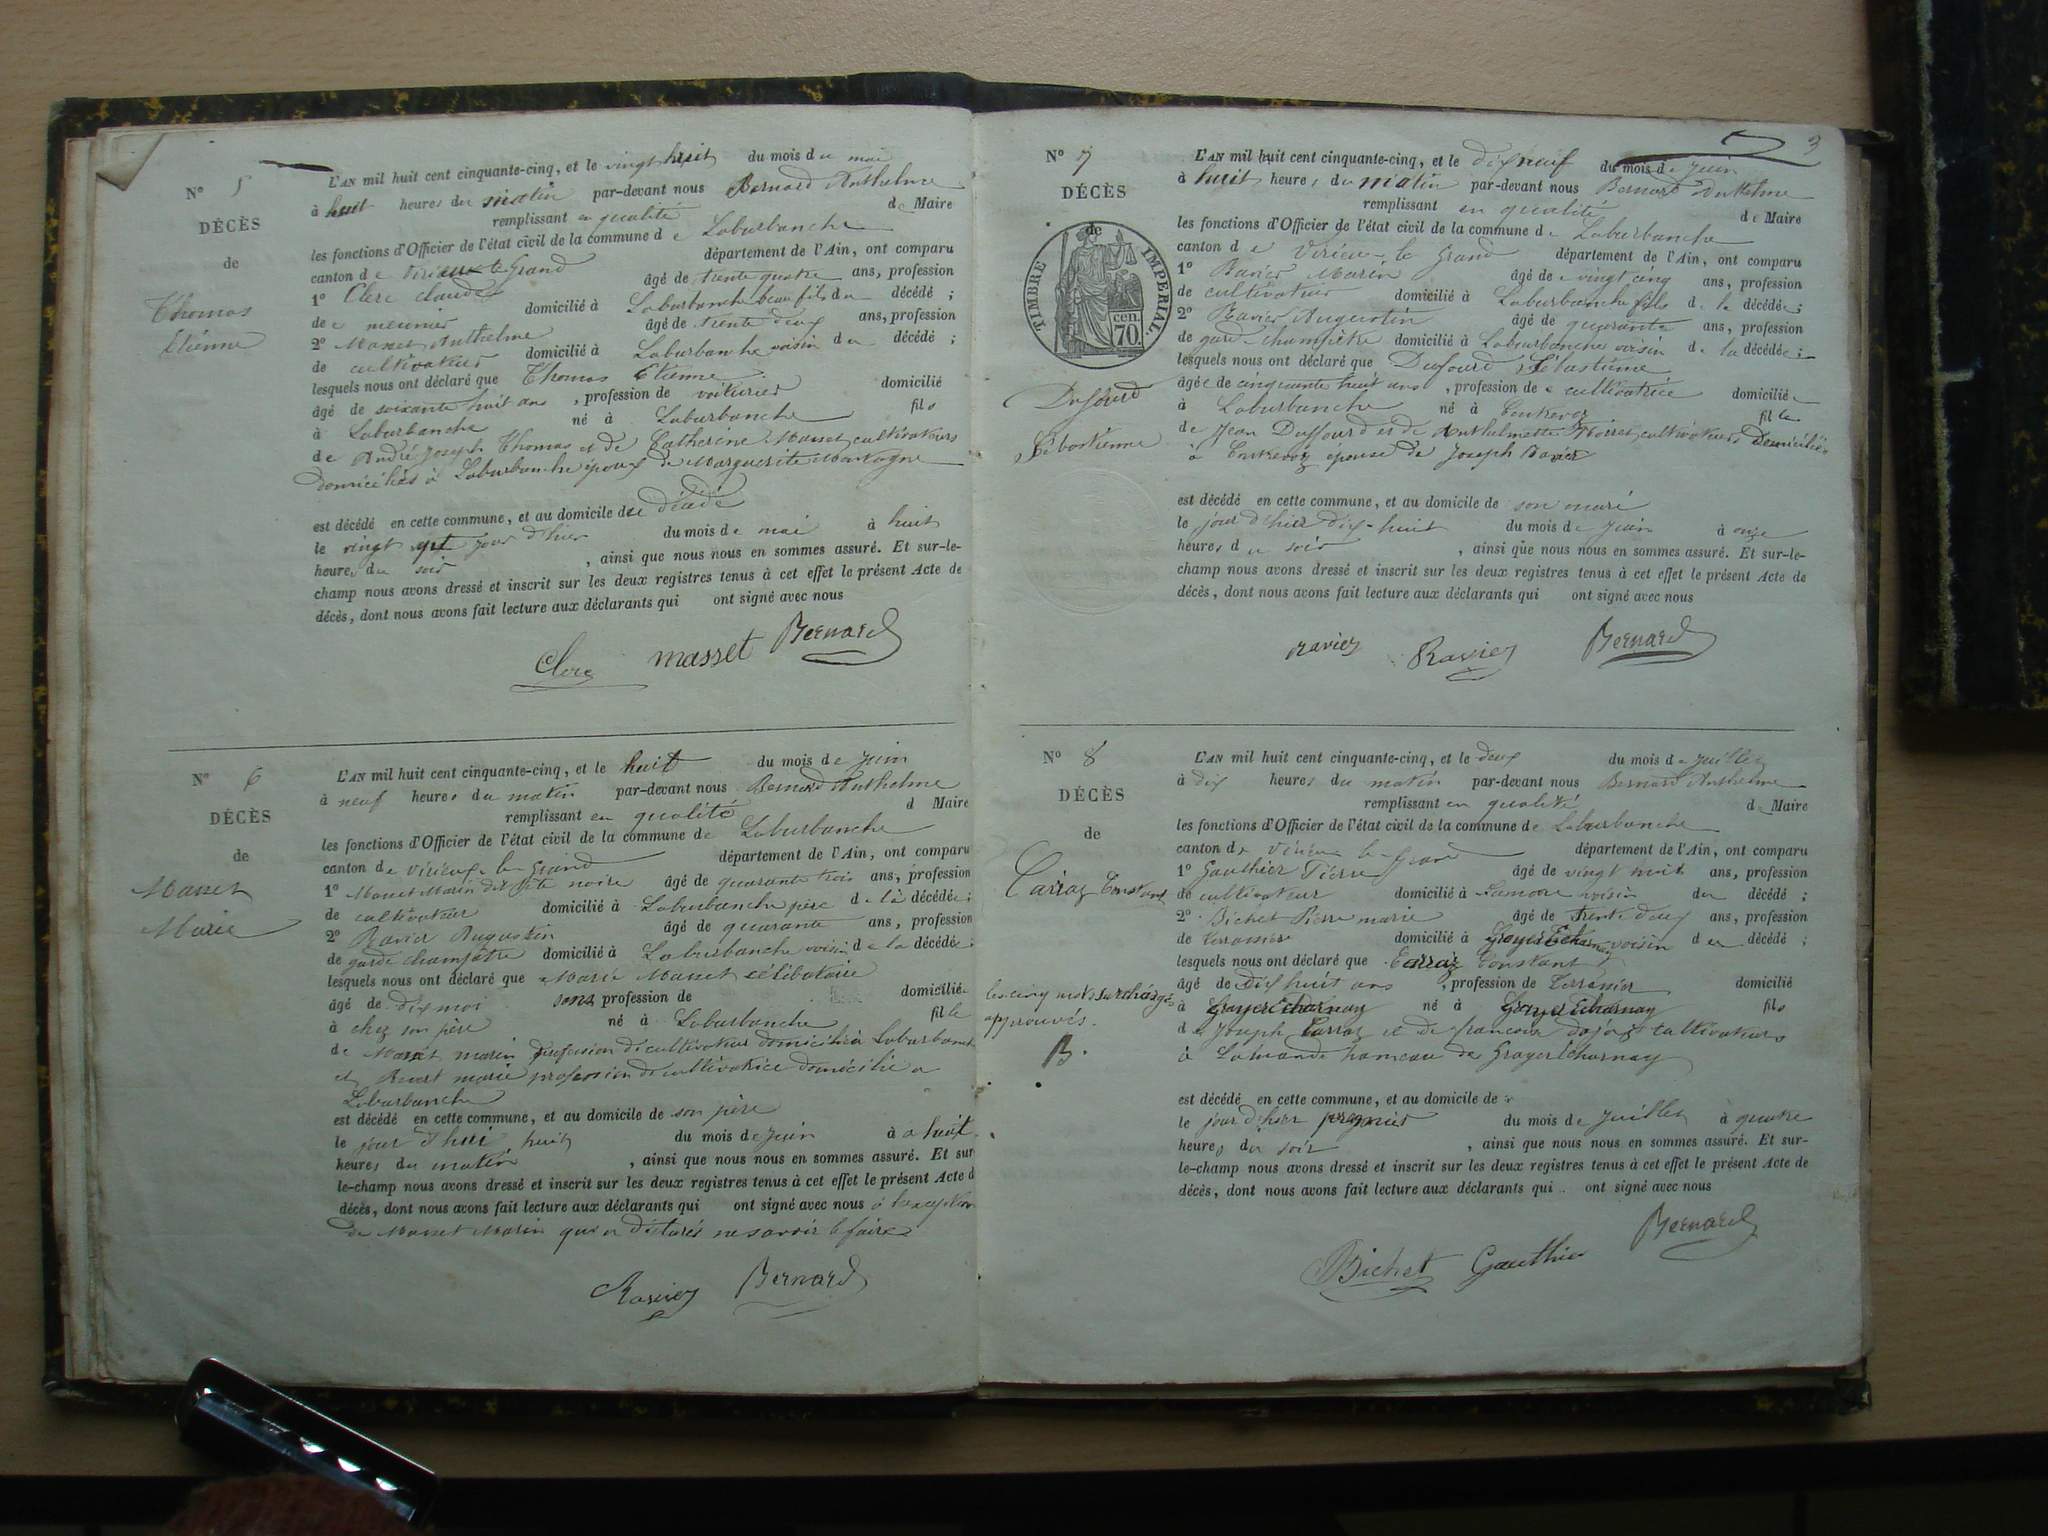 N° 5
DÉCÈS
de
Thomas
Etienne
L'AN mil huit cent cinquante-cinq, et le vingt huit du mois du mai
à huit heures du matin par-devant nous Bernard Anthelme
remplissant en qualité de Maire
les fonctions d'Officier de l'état civil de la commune de Laburbanche
canton de Virieux le Grand département de l'Ain, ont comparu
1° Clerc claude âgé de trente quatre ans, profession
de meunier domicilié à Laburbanche beau fils du décédé ;
2° Masset Anthelme âgé de trente deux ans, profession
de cultivateur domicilié à Laburbanche voisin du décédé ;
lesquels nous ont déclaré que Thomas Etienne
âgé de soixante huit ans , profession de voiturier domicilié
à Laburbanche né à Laburbanche fils
de André Joseph Thomas et de Catherine Masset cultivateurs
domiciliés à Laburbanche époux de Marguerite Montagne
est décédé en cette commune, et au domicile de décédé
le vingt sept jour d'hier du mois de mai à huit
heures du soir , ainsi que nous nous en sommes assuré. Et sur-le-
champ nous avons dressé et inscrit sur les deux registres tenus à cet effet le présent Acte de
décès, dont nous avons fait lecture aux déclarants qui ont signé avec nous
Clerc masset Bernard
N° 6
DÉCÈS
de
Masset
Marie
L'AN mil huit cent cinquante-cinq, et le huit du mois de juin
à neuf heures du matin par-devant nous Bernard Anthelme
remplissant en qualité d Maire
les fonctions d'Officier de l'état civil de la commune de Laburbanche
canton de Virieux le Grand département de l'Ain, ont comparu
1° Masset Marin dit tête noire âgé de quarante trois ans, profession
de cultivateur domicilié à Laburbanche père de la décédée ;
2° Ravier Augustin âgé de quarante ans, profession
de garde champêtre domicilié à Laburbanche voisin de la décédée ;
lesquels nous ont déclaré que Marie Masset célibataire
âgé de dix moi sans profession de domiciliée
à chez son père né à Laburbanche fille
de Masset marin profession de cultivateur domicilié à Laburbanche
et marie profession de cultivatrice domicilié a
Laburbanche
est décédé en cette commune, et au domicile de son père
le jour d'hui huit du mois de juin à huit
heures du matin , ainsi que nous nous en sommes assuré. Et sur
le-champ nous avons dressé et inscrit sur les deux registres tenus à cet effet le présent Acte d
décès, dont nous avons fait lecture aux déclarants qui ont signé avec nous à l'exception
de Masset Marin qui a déclaré ne savoir le faire
Ravier Bernard
3
N° 7
DÉCÈS
de
TIMBRE IMPERIAL.
cen.
70.
Dufourd
Sébastienne
L'AN mil huit cent cinquante-cinq, et le dix neuf du mois de juin
à huit heures du matin par-devant nous Bernard Anthelme
remplissant en qualité de Maire
les fonctions d'Officier de l'état civil de la commune de Laburbanche
canton de Virieu-le Grand département de l'Ain, ont comparu
1° Ravier Marin âgé de vingt cinq ans, profession
de cultivateur domicilié à Laburbanche fils de la décédée ;
2° Ravier Augustin âgé de quarante ans, profession
de garde-champêtre domicilié à Laburbanche voisin de la décédée ;
lesquels nous ont déclaré que Dufourd Sébastienne
âgée de cinquante huit ans , profession de cultivatrice domiciliée
à Laburbanche né à Contrevoz fille
de Jean Duffourd et de Anthelmette cultivateurs Domiciliés
à Contrevoz épouse de Joseph Ravier
est décédé en cette commune, et au domicile de son mari
le jour d'hier dix-huit du mois de juin à onze
heures du soir , ainsi que nous nous en sommes assuré. Et sur-le-
champ nous avons dressé et inscrit sur les deux registres tenus à cet effet le présent Acte de
décès, dont nous avons fait lecture aux déclarants qui ont signé avec nous
ravier Ravier Bernard
N° 8
DÉCÈS
de
Carraz Constant
les cinq mots surchargés
approuvés.
B.
L'AN mil huit cent cinquante-cinq, et le deux du mois de juillet
à dix heures du matin par-devant nous Bernard Anthelme
remplissant en qualité de Maire
les fonctions d'Officier de l'état civil de la commune de Laburbanche
canton de Virieu le Grand département de l'Ain, ont comparu
1° Gauthier Pierre âgé de vingt huit ans, profession
de cultivateur domicilié à voisin du décédé ;
2° Bichet Pierre marie âgé de trente deux ans, profession
de terrassier domicilié à voisin du décédé ;
lesquels nous ont déclaré que Carraz Constant
âgé de dix huit ans , profession de terrassier domicilié
à né à fils
de Joseph Carraz et de francoise cultivateurs
à hameau de
est décédé en cette commune, et au domicile de
le jour d'hier premier du mois de juillet à quatre
heures du soir , ainsi que nous nous en sommes assuré. Et sur-
le-champ nous avons dressé et inscrit sur les deux registres tenus à cet effet le présent Acte de
décès, dont nous avons fait lecture aux déclarants qui ont signé avec nous
Bichet Gauthier Bernard